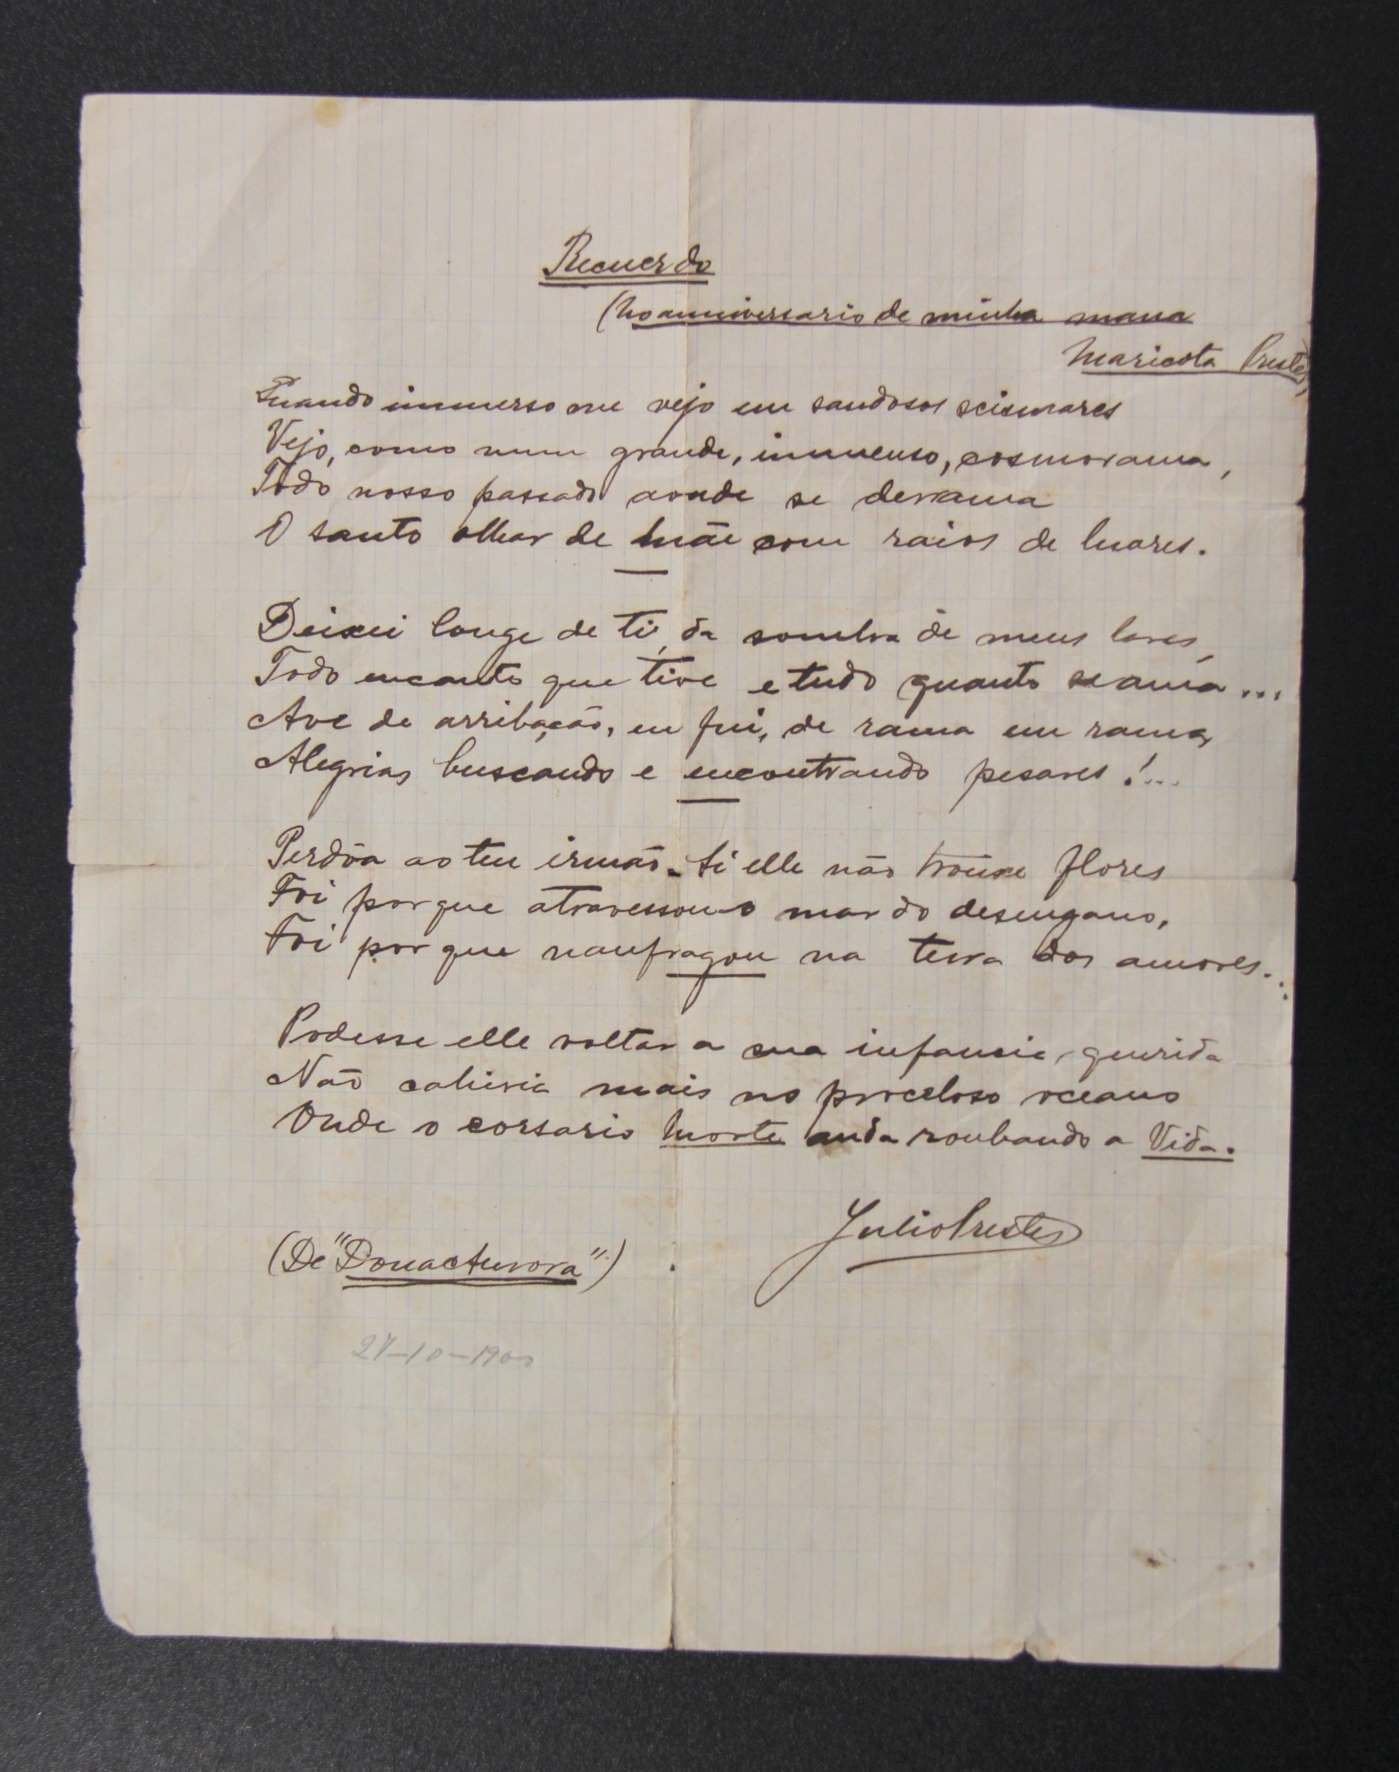 Recuerdo
(No anniversario de minha mana
Maricota Prestes)
Quando immerso me vejo em saudosos scismares
Vejo, como num grande, immenso, cosmorama,
Todo nosso passado aonde se derrama
O santo olhar de Mãe com raios de luares.
Deixei longe de ti, da sombra de meus lares,
Todo encanto que tive e tudo quanto se ama...
Ave de arribação, eu fui, de rama em rama,
Alegrias buscando e encontrando pesares!...
Perdôa ao teu irmão. Si elle não trouxe flores
Foi porque atravessou o mar do desengano,
Foi porque naufragou na terra dos amores...
Podesse elle voltar a sua infancia querida
Não cahiria mais no proceloso oceano
Onde o corsario Morte anda roubando a Vida.
Julio Prestes
(De "Dona Aurora")
27-10-1900